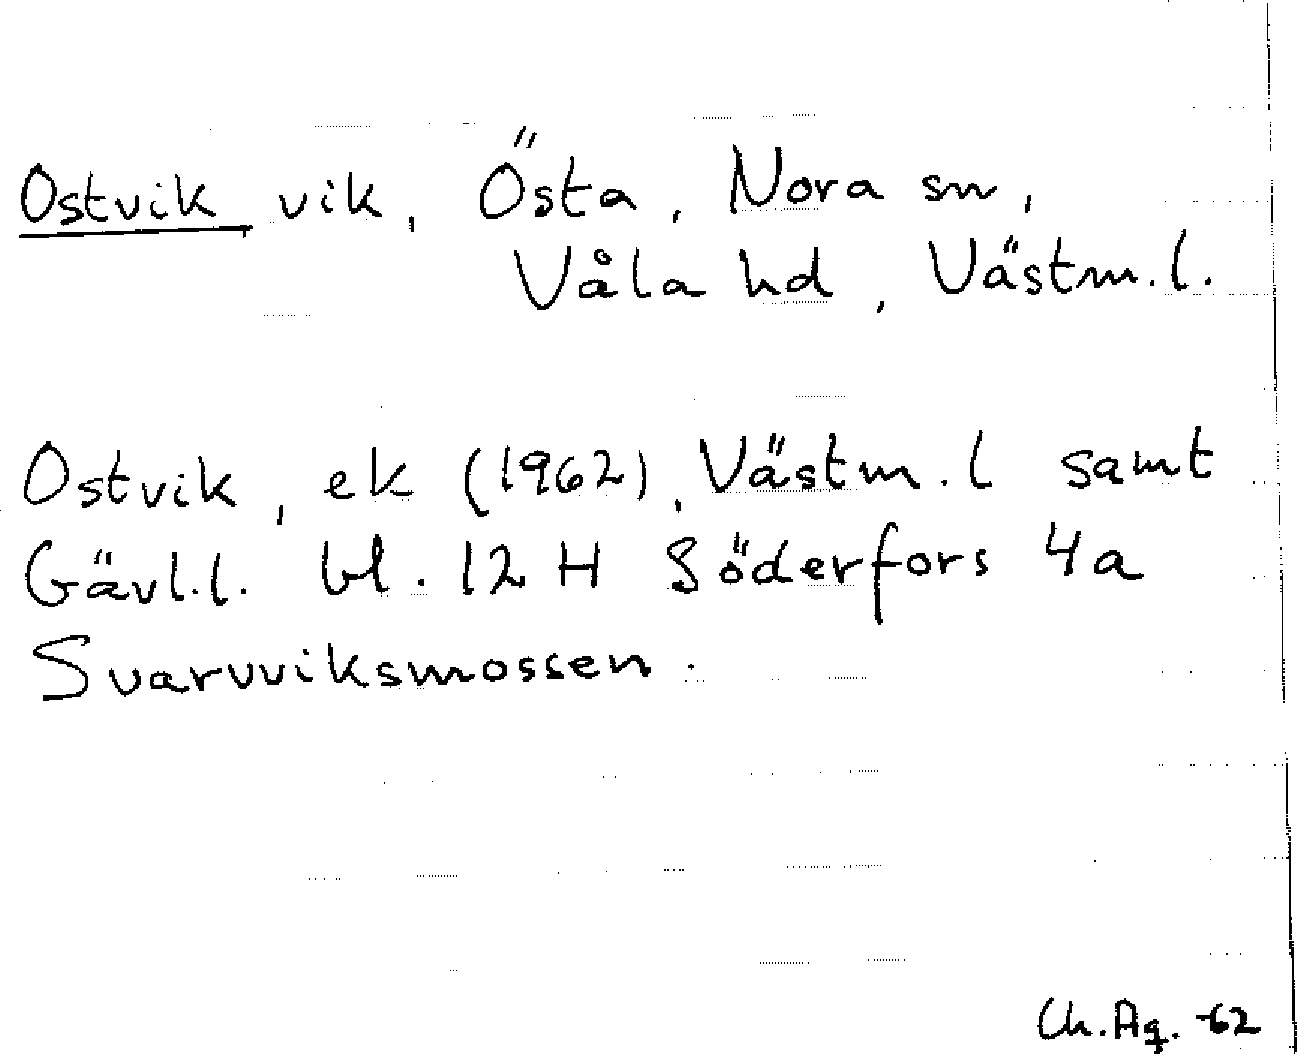 Ostvik vik, Östa, Nora sn,
Våla hd, Västm.l.
Ostvik, ek (1962), Västm.l samt
Gävl.l. bl. 12 H Söderfors 4a
Svarvviksmossen.
Ch.Ag. -62